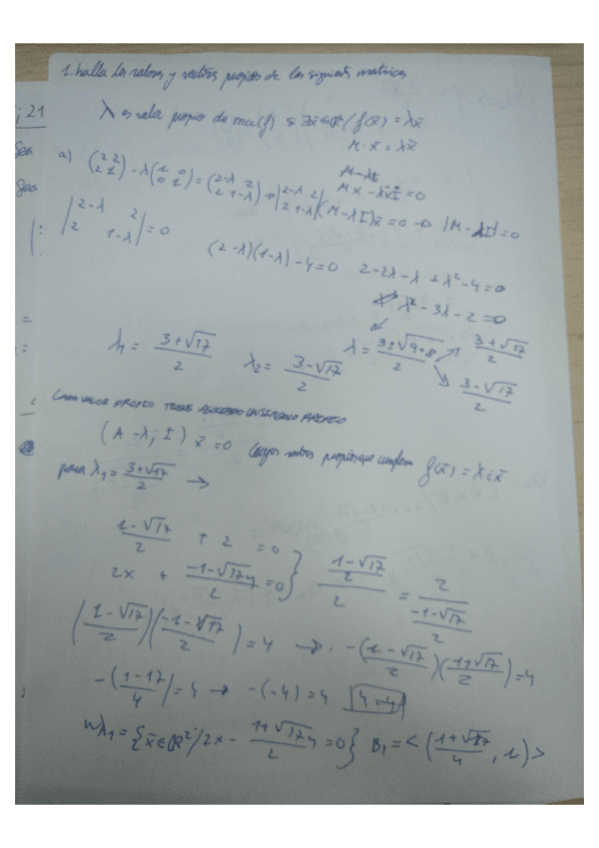 1. halla los valores y vectores propios de las siguientes matrices
; 21
λ es valor propio de ma(f) si ∃x̄∈ℝ²/ f(x̄) = λx̄
M · x̄ = λx̄
M - λI
Mx - λx̄I = 0
a) (2 2; 2 1) - λ(1 0; 0 1) = (2-λ 2; 2 1-λ) → |2-λ 2; 2 1-λ| (M - λI)x̄ = 0 → |M - λI| = 0
|2-λ 2; 2 1-λ| = 0
(2-λ)(1-λ) - 4 = 0 2 - 2λ - λ + λ² - 4 = 0
λ² - 3λ - 2 = 0
λ₁ = (3+√17)/2 λ₂ = (3-√17)/2 λ = (3±√(9+8))/2 (3+√17)/2
(3-√17)/2
CADA VALOR PROPIO TIENE ASOCIADO UN PROPIO
(A - λᵢ I) x̄ = 0 vectores propios que cumplan f(x̄) = λᵢx̄
para λ₁ = (3+√17)/2 →
(1-√17)/2 + 2 = 0
2x + (-1-√17)/2 y = 0 } ((1-√17)/2)/2 = 2/((-1-√17)/2)
((1-√17)/2)((-1-√17)/2) = 4 → -((1-√17)/2)((1+√17)/2) = 4
-((1-17)/4) = 4 → -(-4) = 4 4=4
Wλ₁ = {x̄∈ℝ²/ 2x - (1+√17)/2 y = 0} B₁ = <((1+√17)/4, 1)>